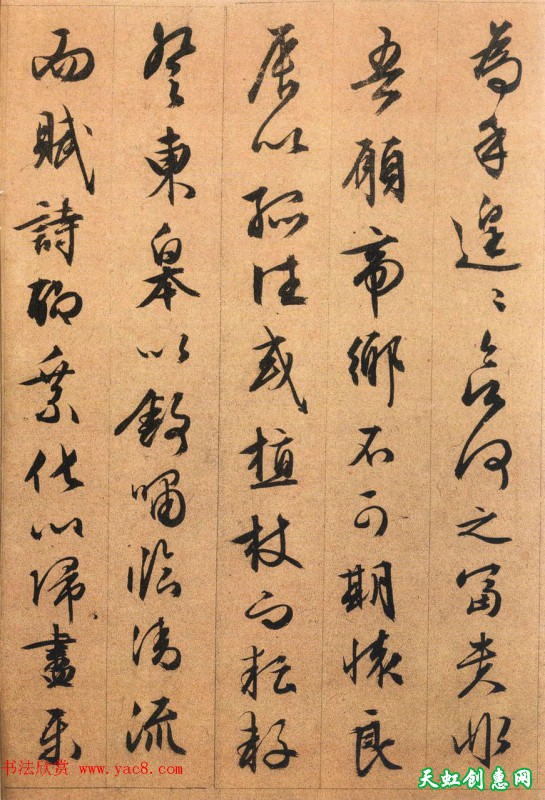 為乎遑〻欲何之富貴非
吾願帝鄉不可期懷良
辰以孤往或植杖而耘耔
登東皋以舒嘯臨清流
而賦詩聊乘化以歸盡樂
书法欣赏 www.yac8.com
天虹创惠网